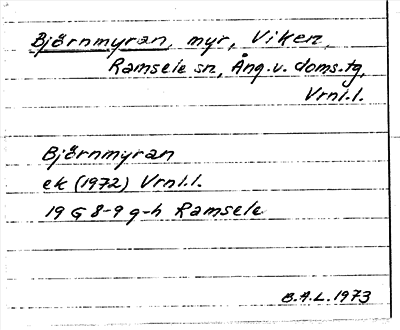 Björnmyran, myr, Viken,
Ramsele sn, Ång.v. doms.tg,
Vrnl.l.
Björnmyran
ek (1972) Vrnl.l.
19 G 8-9 g-h Ramsele
B.A.L. 1973